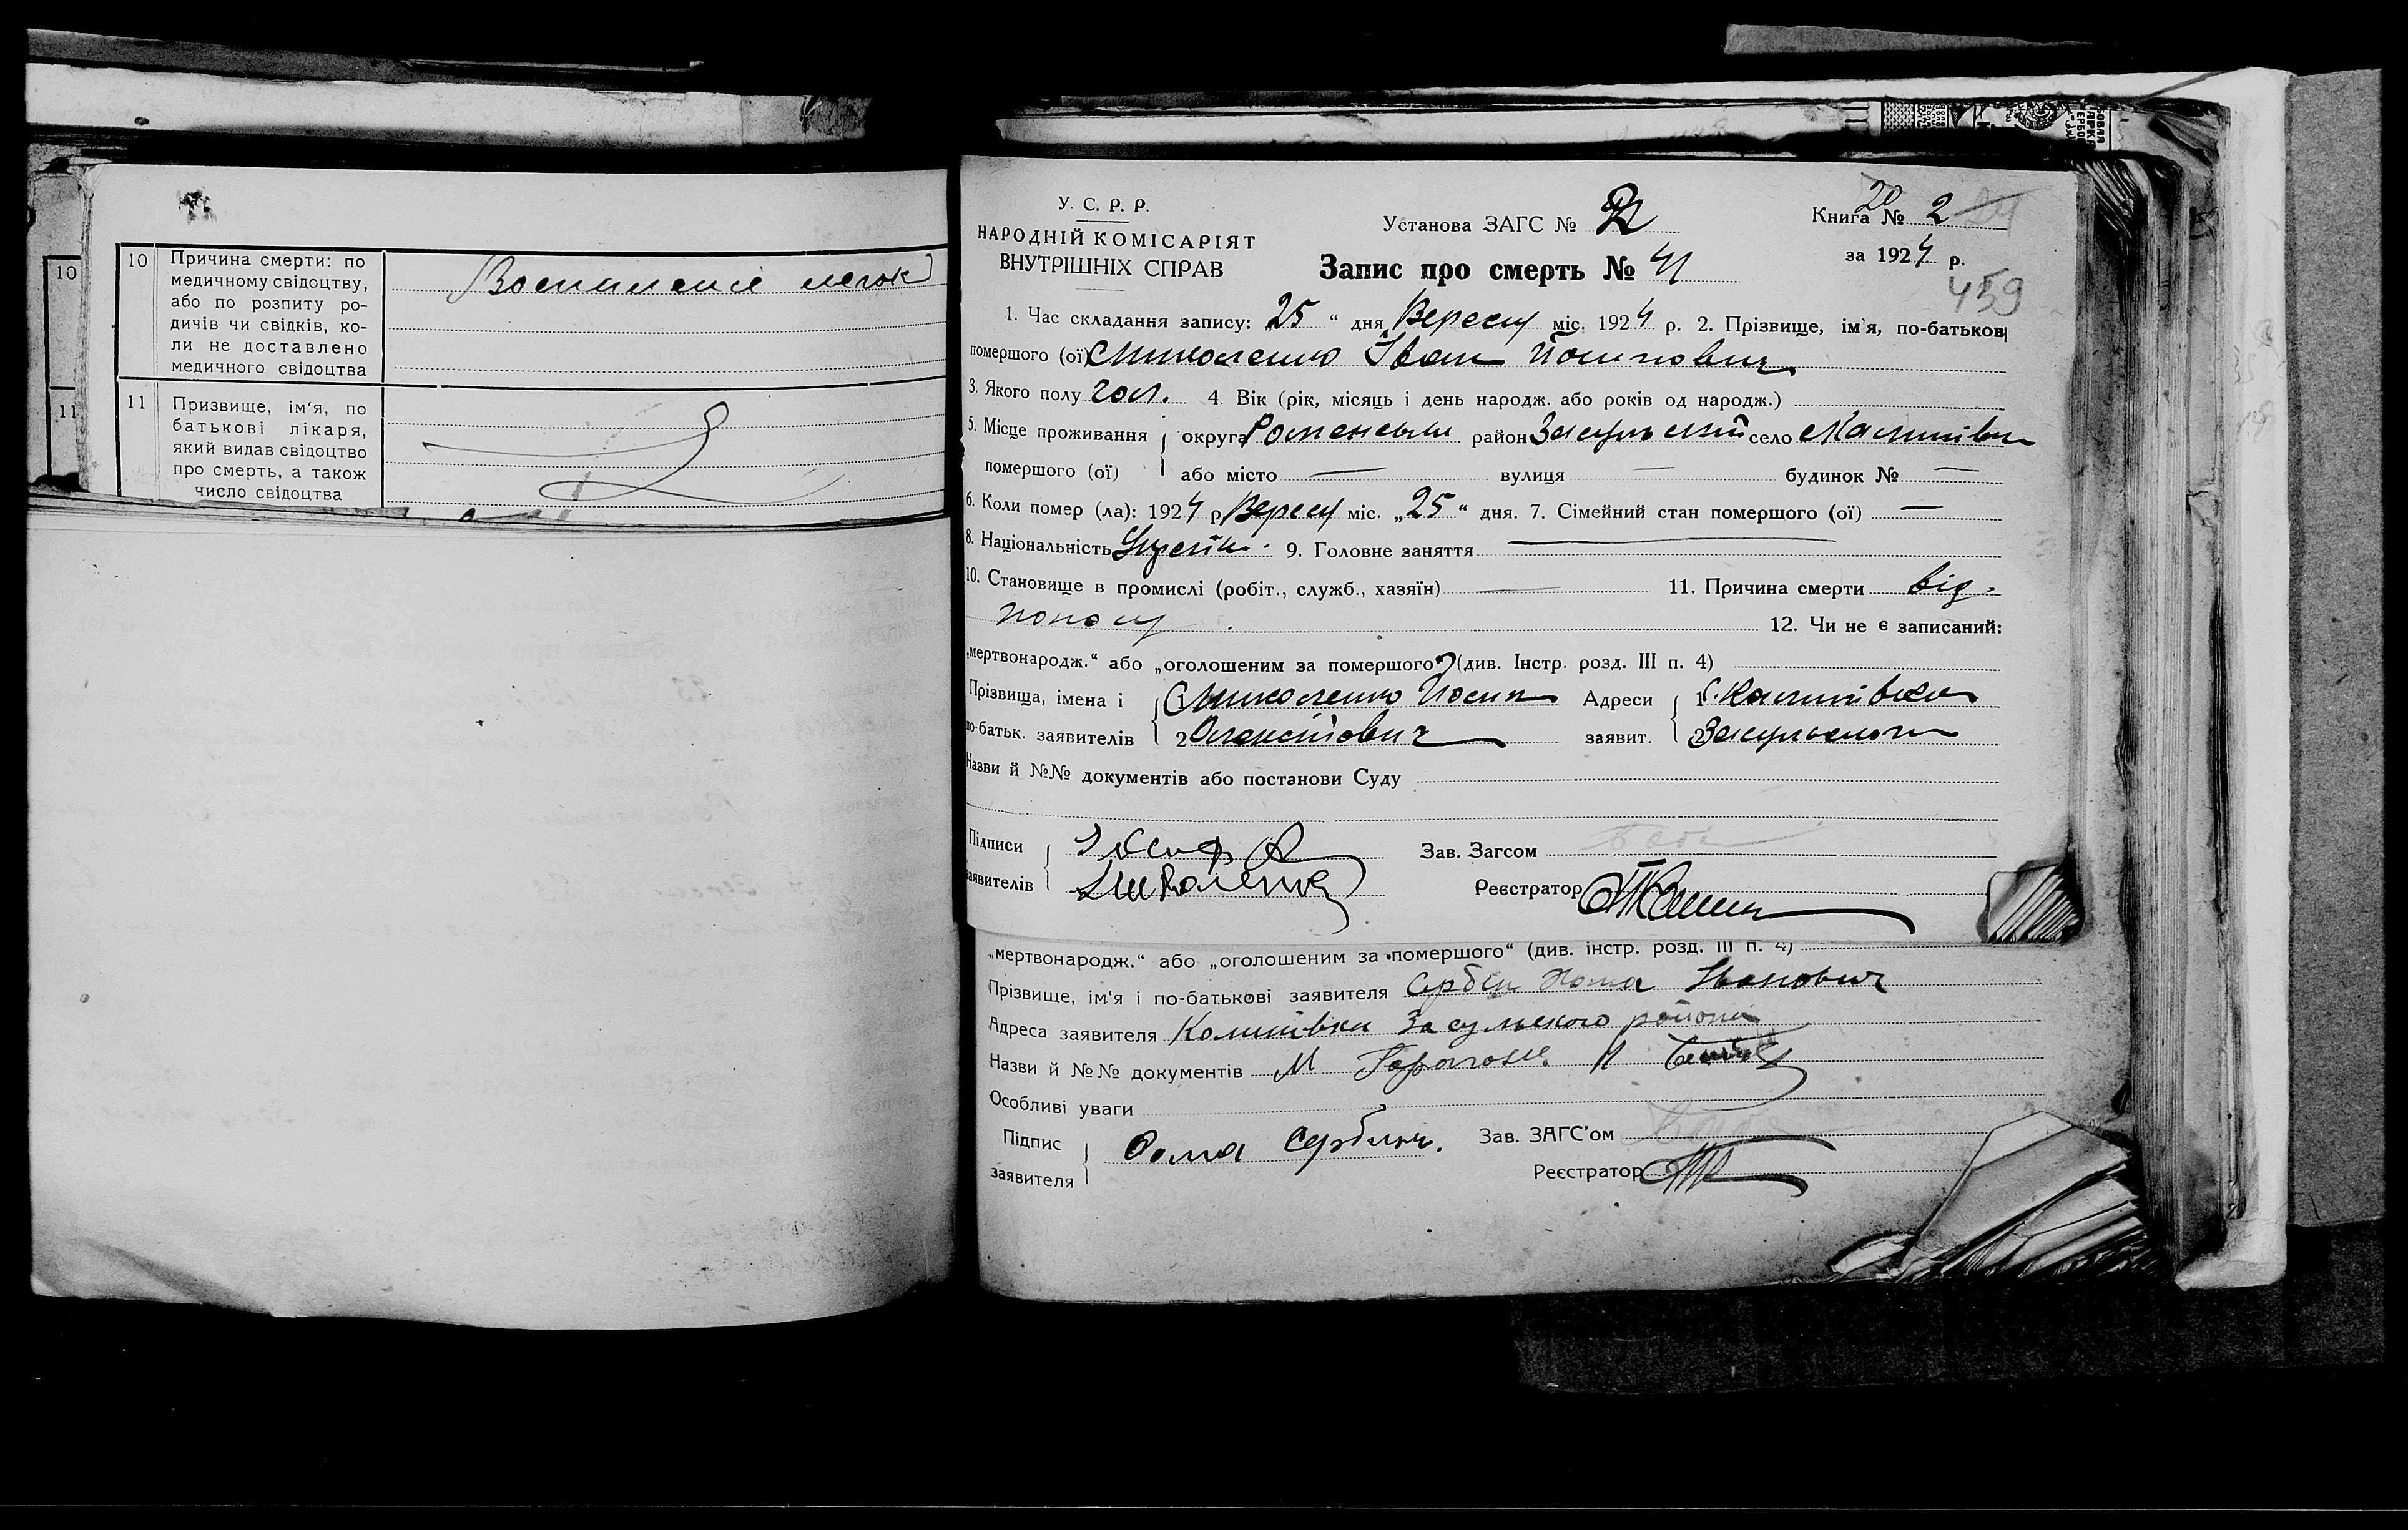 10
11
10 Причина смерти: по
медичному свідоцтву,
або по розпиту ро-
дичів чи свідків, ко-
ли не доставлено
медичного свідоцтва
Воспаление легок
11 Призвище, ім'я, по
батькові лікаря,
який видав свідоцтво
про смерть, а також
число свідоцтва
У. С. Р. Р.
НАРОДНІЙ КОМІСАРІЯТ
ВНУТРІШНІХ СПРАВ
Установа ЗАГС №
Книга № 2
20
за 1924 р.
459
Запис про смерть № 41
1. Час складання запису: „25“ дня Вересн міс. 1924 р. 2. Прізвище, ім'я, по-батькові
помершого (ої) Симоленко Іван Йосипович
3. Якого полу чол. 4. Вік (рік, місяць і день народж. або років од народж.)
5. Місце проживання округа Роменськи район Засульський село Калинівки
помершого (ої) або місто — вулиця — будинок № —
6. Коли помер (ла): 1924 р Вересн міс. „25“ дня. 7. Сімейний стан помершого (ої) —
8. Національність Україн. 9. Головне заняття —
10. Становище в промислі (робіт., служб., хазяїн) — 11. Причина смерти від
поносу 12. Чи не є записаний:
„мертвонародж.“ або „оголошеним за помершого“? (див. Інстр. розд. III п. 4)
Прізвища, імена і Симоленко Йосип Адреси 1 с. Калинівка
по-батьк. заявителів 2 Олексійович заявит. 2 Засульського
Назви й №№ документів або постанови Суду
Підписи Зав. Загсом
заявителів Реєстратор
„мертвонародж.“ або „оголошеним за помершого“ (див. інстр. розд. III п. 4)
Прізвище, ім'я і по-батькові заявителя Сербин Хома Іванович
Адреса заявителя Калинівки Засульского района
Назви й №№ документів
Особливі уваги
Підпис Фома Сербин. Зав. ЗАГС'ом
заявителя Реєстратор